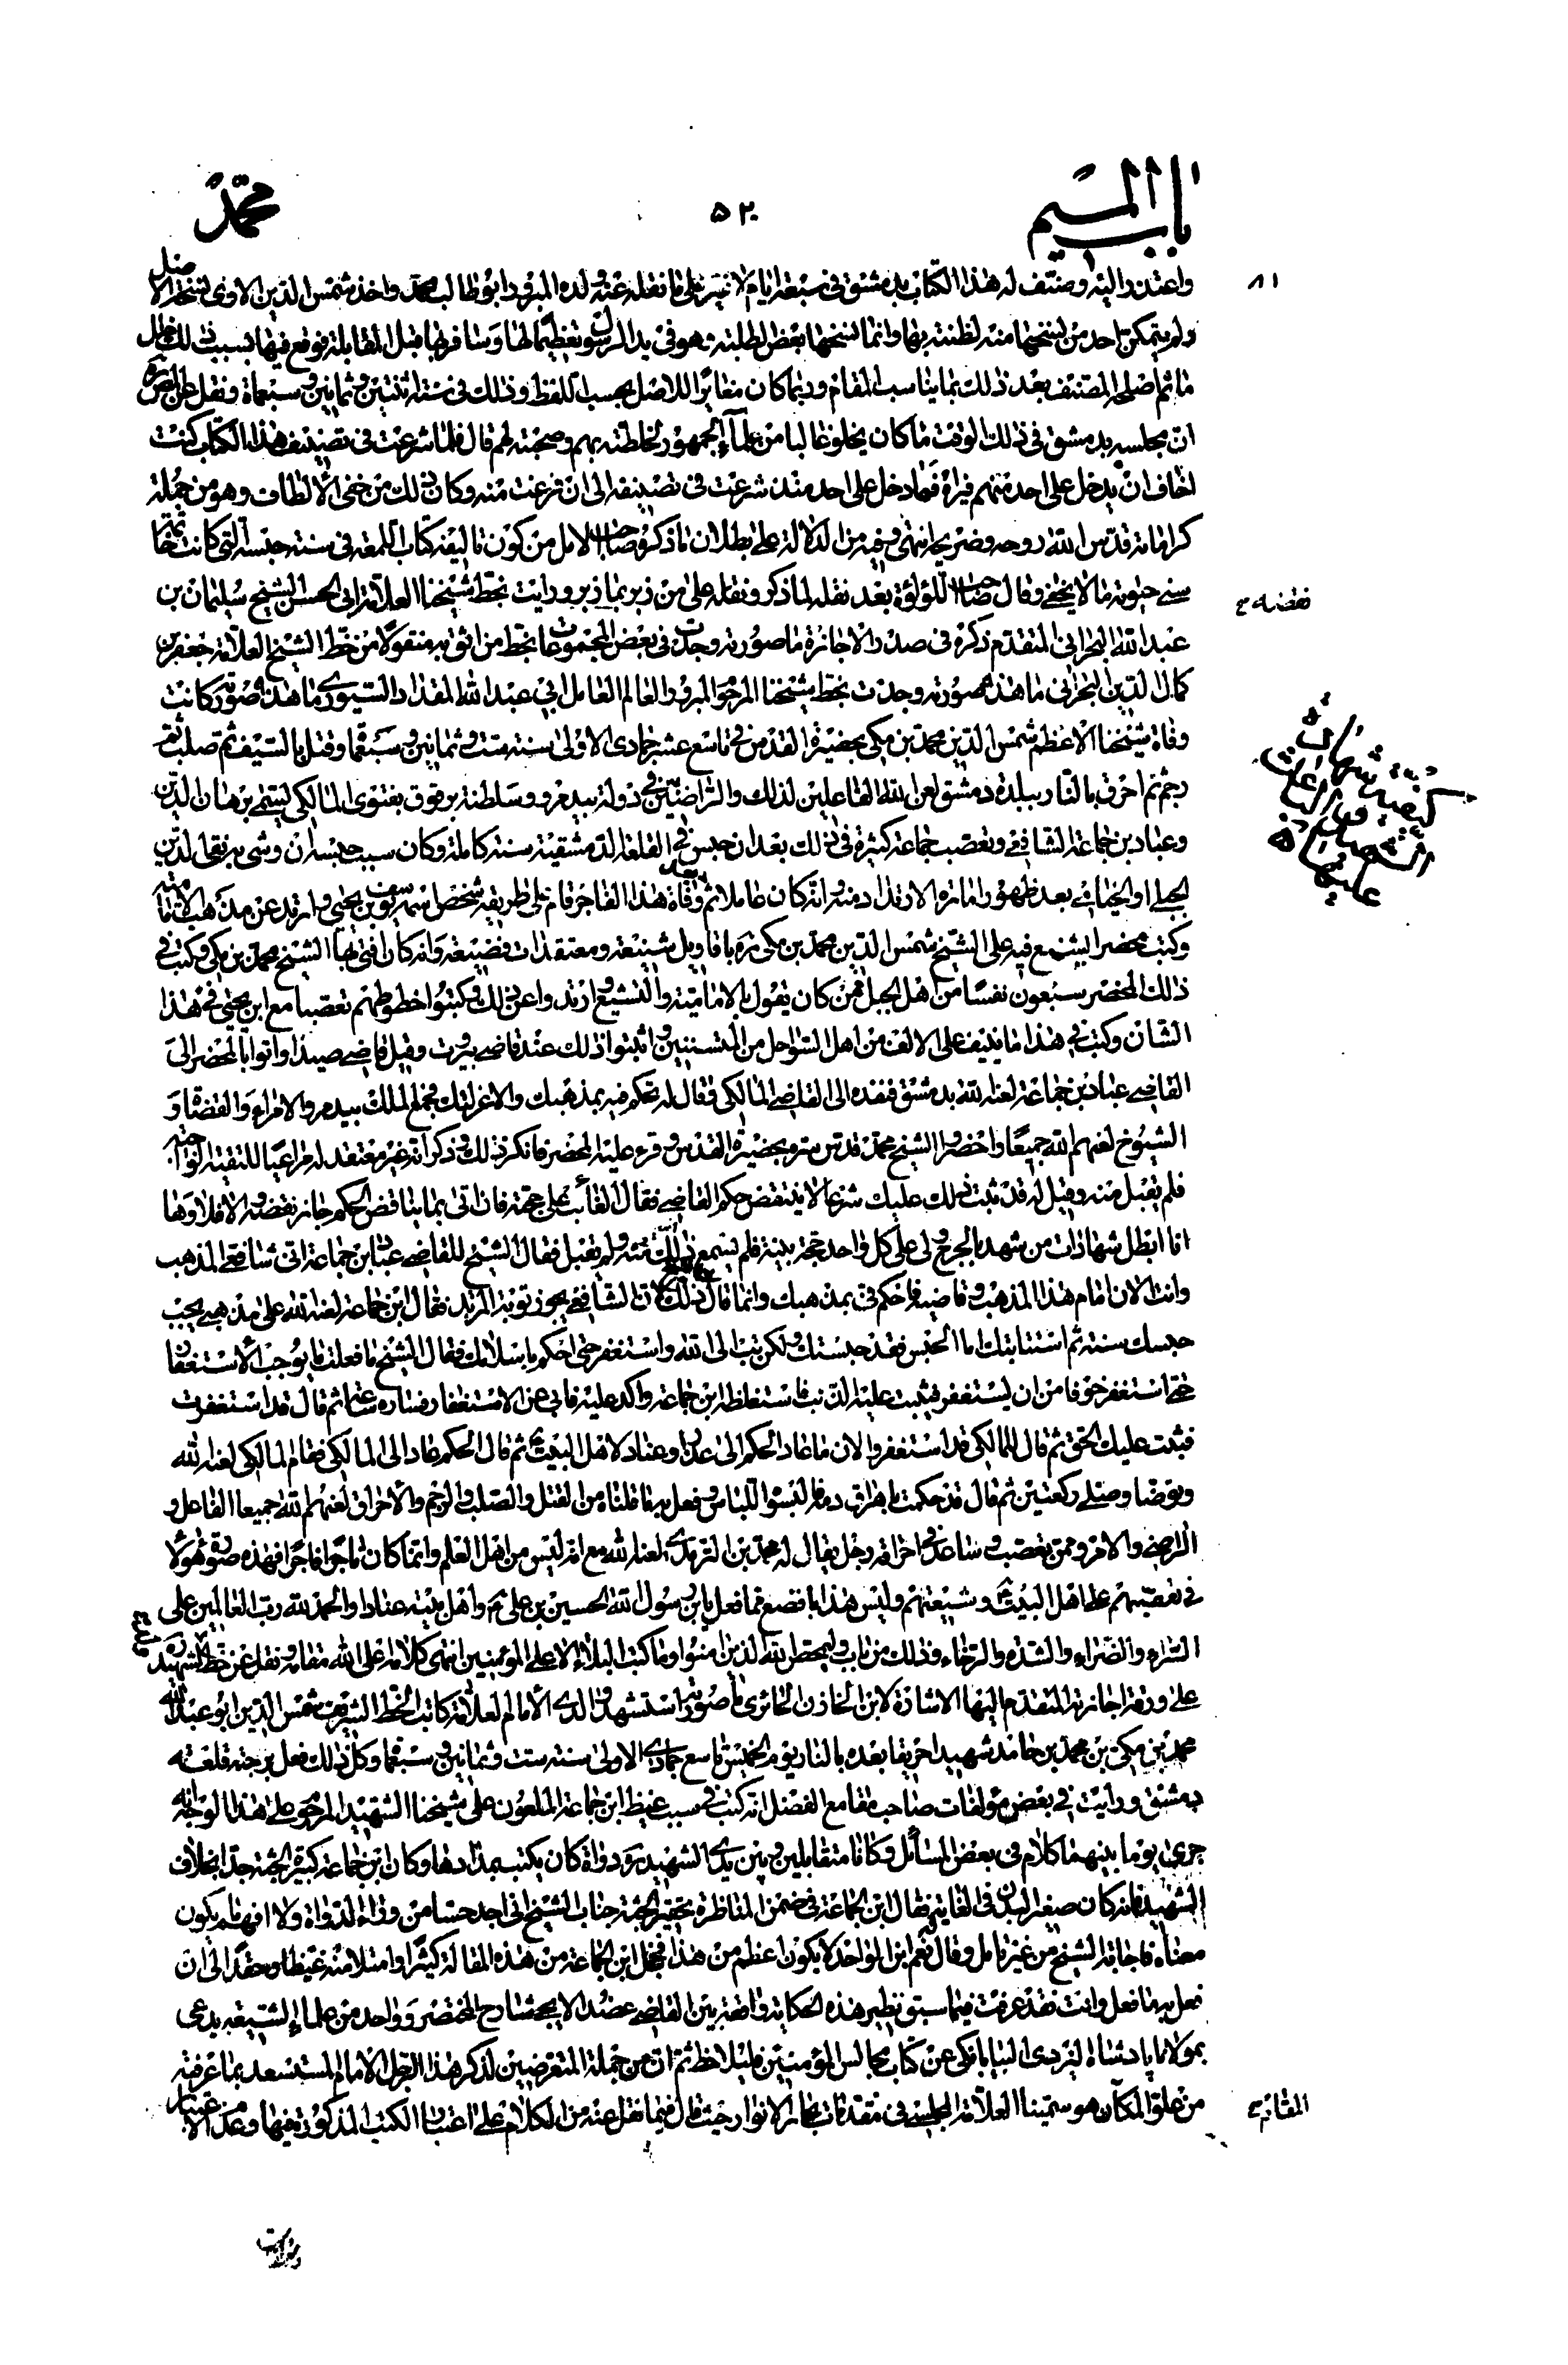 باب الميم
۵۲۰
محمد
۸۱
واعتذر اليه وصنف له هذا الكتاب بدمشق في سبعة ايام لا غير على ما نقله عنه ولده المبرور ابو طالب محمد واخذ شمس الدين الاوى نسخة الاصل
ولم يتمكن احد من نسخها منه لظنته بها وانما نسخها بعض الطلبة وهو في يد الرسول تعظيما لها وسافر بها قبل المقابلة فوقع فيها بسبب ذلك خلل
ما ثم اصلحه المصنف بعد ذلك بما يناسب المقام وربما كان مغايرا للاصل بحسب اللفظ وذلك في سنة اثنتين وثمانين وسبعمائة ونقل عن المصنف ره
ان مجلسه بدمشق في ذلك الوقت ما كان يخلو غالبا من علماء الجمهور لخلطته بهم وصحبته لهم قال فلما شرعت في تصنيف هذا الكتاب كنت
اخاف ان يدخل على احد منهم فيراه فما دخل على احد منذ شرعت في تصنيفه الى ان فرغت منه وكان ذلك من خفى الالطاف وهو من جملة
كراماته قدس الله روحه وضريحه انتهى وفيه من الدلالة على بطلان ما ذكره صاحب الامل من كون تاليفه كتاب اللمعة في سنة حبسه التي كانت خاتمة
سنى حيوته ما لا يخفى وقال صاحب اللؤلؤة بعد نقله لما ذكر ونقله على من زبر بما زبر ورايت بخط شيخنا العلامة ابى الحسن الشيخ سليمان بن
عبد الله البحراني المتقدم ذكره في صدر الاجازة ما صورته وجدت في بعض المجموعات بخط من اثق به منقولا من خط الشيخ العلامة جعفر بن
كمال الدين البحراني ما هذه صورته وجدت بخط شيخنا المرحوم المبرور العالم العامل ابى عبد الله المقداد السيورى ما هذه صورته كانت
وفاة شيخنا الاعظم شمس الدين محمد بن مكى بحضيرة القدس في تاسع عشر جمادى الاولى سنة ست وثمانين وسبعمائة وقتل بالسيف ثم صلب ثم
رجم ثم احرق بالنار ببلدة دمشق لعن الله الفاعلين لذلك والراضين في دولة بيدمر وسلطنة برقوق بفتوى المالكى يسمى برهان الدين
وعباد بن جماعة الشافعى وتعصب جماعة كثيرة في ذلك بعد ان حبس في القلعة الدمشقية سنة كاملة وكان سبب حبسه ان وشى به تقى الدين
الجبلى او الخيامى بعد ظهور امارة الارتداد منه وانه كان عاملا ثم بعد وفاة هذا الفاجر قام على طريقه شخص اسمه يوسف بن يحيى وارتد عن مذهب الامامية
وكتب محضرا يشنع فيه على الشيخ شمس الدين محمد بن مكى ره باقاويل شنيعة ومعتقدات فضيعة وانه كان افتى بها الشيخ محمد بن مكى وكتب في
ذلك المحضر سبعون نفسا من اهل الجبل ممن كان يقول بالامامية والتشيع وارتدوا عن ذلك وكتبوا خطوطهم تعصبا مع ابن يحيى في هذا
الشان وكتب في هذا ما ينيف على الالف من اهل السواحل من المتسننين واثبتوا ذلك عند قاضى بيروت وقيل قاضى صيدا واتوا بالمحضر الى
القاضى عباد بن جماعة لعنه الله بدمشق فنفذه الى القاضى المالكى فقال له تحكم فيه بمذهبك والا عزلتك فجمع الملك بيدمر والامراء والقضاة و
الشيوخ لعنهم الله جميعا واحضروا الشيخ محمد قدس سره بحضيرة القدس وقرء عليه المحضر فانكر ذلك وذكر انه غير معتقد له مراعيا للتقية الواجبة
فلم يقبل منه وقيل له قد ثبت ذلك عليك شرعا لا ينتقض حكم القاضى فقال الغائب على حجته فان اتى بما يناقض الحكم جاز نقضه والا فلا وها
انا ابطل شهادات من شهد بالجرح ولى على كل واحد حجة بينة فلم يسمع ذلك منه ولم يقبل فقال الشيخ للقاضى عباد بن جماعة انى شافعى المذهب
وانت الان امام هذا المذهب وقاضيه فاحكم فى بمذهبك وانما قال ذلك لان الشافعى يجوز توبة المرتد فقال ابن جماعة لعنه الله على مذهبى يجب
حبسك سنة ثم استتابتك اما الحبس فقد حبستك ولكن تب الى الله واستغفر حتى احكم باسلامك فقال الشيخ ما فعلت ما يوجب الاستغفار
حتى استغفر خوفا من ان يستغفر فيثبت عليه الذنب فاستغلظه ابن جماعة واكد عليه فابى عن الاستغفار فساره ساعة ثم قال قد استغفرت
فثبت عليك الحق ثم قال للمالكى قد استغفر والان ما عاد الحكم الى عدوانا وعنادا لاهل البيت ثم قال الحكم عاد الى المالكى فقام المالكى لعنه الله
وتوضا وصلى ركعتين ثم قال قد حكمت باهراق دمه فالبسوا اللباس وفعل به ما قلناه من القتل والصلب والرجم والاحراق لعنهم الله جميعا الفاعل و
الراضى والامر وممن تعصب وساعد في احراقه رجل يقال له محمد بن الترمذى لعنه الله مع انه ليس من اهل العلم وانما كان تاجرا فاجرا فهذه صورة هؤلاء
في تعصبهم على اهل البيت وشيعتهم وليس هذا بافضع مما فعل بابن رسول الله الحسين بن على ع واهل بيته عنادا والحمد لله رب العالمين على
السراء والضراء والشدة والرخاء وذلك من باب وليمحص الله الذين امنوا وما كتب البلاء الا على المؤمنين انتهى كلامه اعلى الله مقامه ونقل عن خط ولد الشهيد ره
على ورقة اجازته المتقدم اليها الاشارة لابن الخازن الحائرى ما صورته استشهد والدى الامام العلامة كاتب الخط الشريف شمس الدين ابو عبد الله
محمد بن مكى بن محمد بن حامد شهيدا حريقا بعده بالنار يوم الخميس تاسع جمادى الاولى سنة ست وثمانين وسبعمائة وكل ذلك فعل برحبة قلعة
دمشق ورايت في بعض مؤلفات صاحب مقامع الفضل انه كتب في سبب غيظ ابن جماعة الملعون على شيخنا الشهيد المرحوم على هذا الوجه انه
جرى يوما بينهما كلام في بعض المسائل وكانا متقابلين وبين يدى الشهيد ره دواة كان يكتب بمدادها وكان ابن جماعة كبير الجثة جدا بخلاف
الشهيد فانه كان صغير البدن في الغاية فقال ابن الجماعة في ضمن المناظرة تحقيرا لجثة جناب الشيخ انى اجد حسا من وراء الدواة ولا افهم ما يكون
معناه فاجابه الشيخ من غير تامل وقال نعم ابن الواحد لا يكون اعظم من هذا فخجل ابن الجماعة من هذه المقالة كثيرا وامتلا منه غيظا وحقدا الى ان
فعل به ما فعل وانت فقد عرفت فيما سبق نظير هذه الحكاية واقعة بين القاضى عضد الايجى شارح المختصر وواحد من علماء الشيعة يدعى
بمولانا پادشاه اليزدى حكى عن كتاب مجالس المؤمنين فليلاحظ ثم ان من جملة المتعرضين لذكر هذا الرجل الامام المستسعد بما عرفته
من علو المكان هو سمينا العلامة المجلسى في مقدمات بحار الانوار حيث قال فيما نقل عنه من الكلام على اعتبار الكتب المذكورة فيها